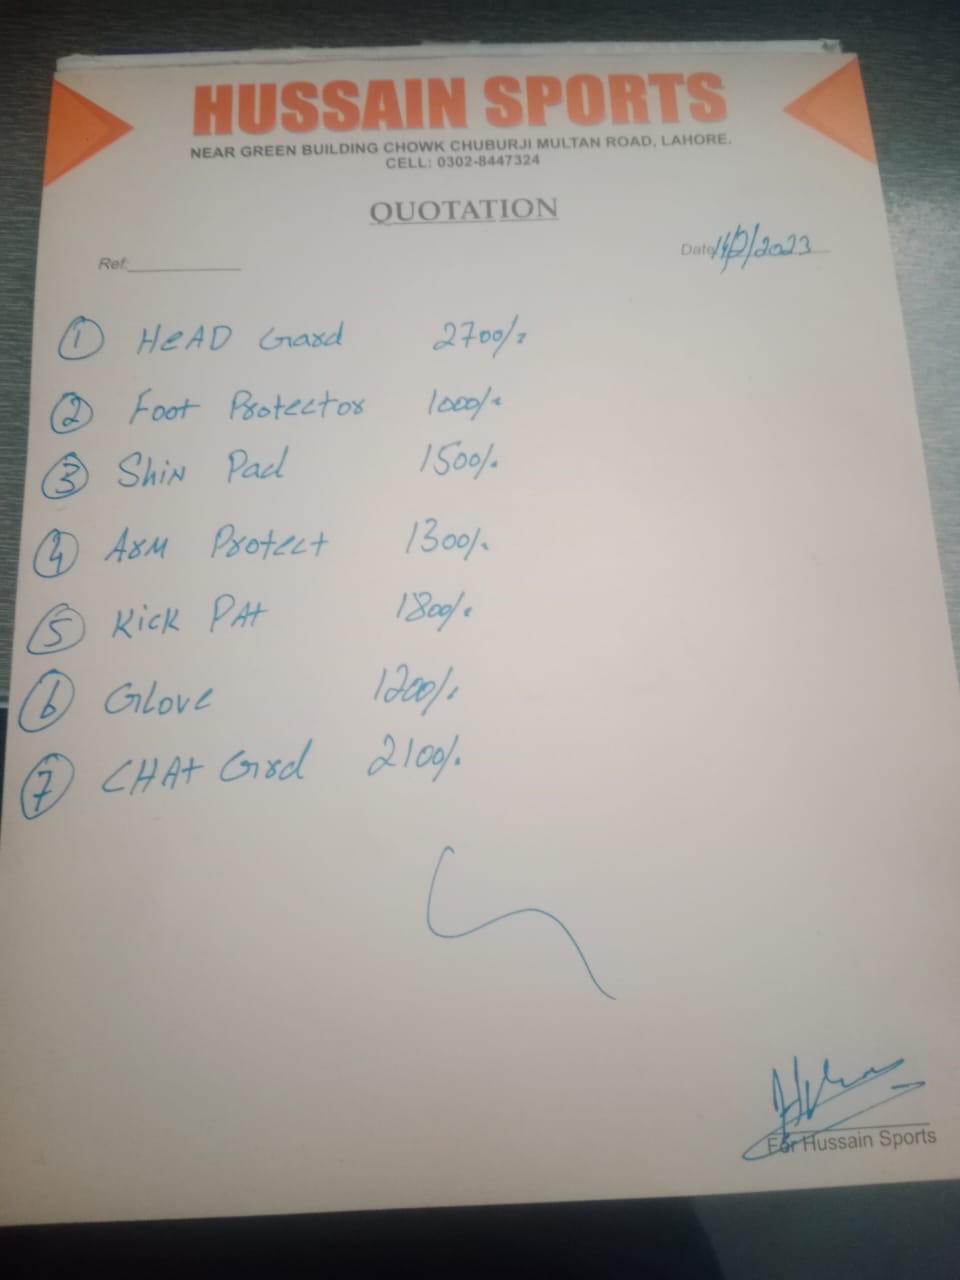 HUSSAIN SPORTS
NEAR GREEN BUILDING CHOWK CHUBURJI MULTAN ROAD, LAHORE.
CELL: 0302-8447324
QUOTATION
Ref:
Date /2023
1 HeAD Gard 2700/-
2 Foot Protector 1000/-
3 Shin Pad 1500/-
4 Arm Protect 1300/-
5 Kick PAt 1800/-
6 Glove 1200/-
7 CHAt Grd 2100/-
For Hussain Sports